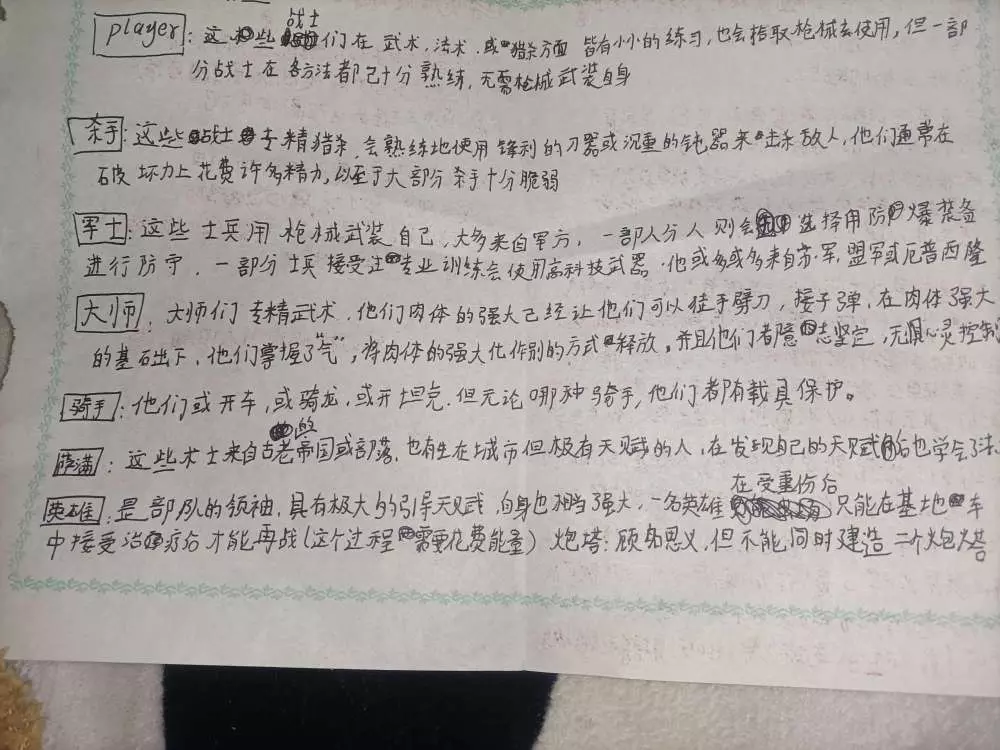 player：这些战士们在武术，法术，或猎杀方面皆有小小的练习，也会拾取枪械去使用，但一部
分战士在各方法都已十分熟练，无需枪械武装自身
杀手：这些战士专精猎杀，会熟练地使用锋利的刃器或沉重的钝器来击杀敌人，他们通常在
破坏力上花费许多精力，以至于大部分杀手十分脆弱
军士：这些士兵用枪械武装自己，大多来自军方，一部人分人则会选择用防爆装备
进行防守，一部分士兵接受过专业训练会使用高科技武器。他或多或多来自市军，盟军或厄普西隆
大师：大师们专精武术，他们肉体的强大已经让他们可以徒手劈刀，接子弹，在肉体强大
的基石出下，他们掌握了“气”，将肉体的强大化作别的方式释放，并且他们者意志坚定，无惧心灵控制
骑手：他们或开车，或骑龙，或开坦克，但无论哪种骑手，他们都有载具保护。
萨满：这些术士来自古老的帝国或部落，也有生在城市但极有天赋的人，在发现自己的天赋后也学会了法
英雄：是部队的领袖，具有极大的引导天赋，自身也相当强大，一名英雄在受重伤后只能在基地车
中接受治疗后才能再战（这个过程需要花费能量）炮塔：顾名思义，但不能同时建造二个炮塔